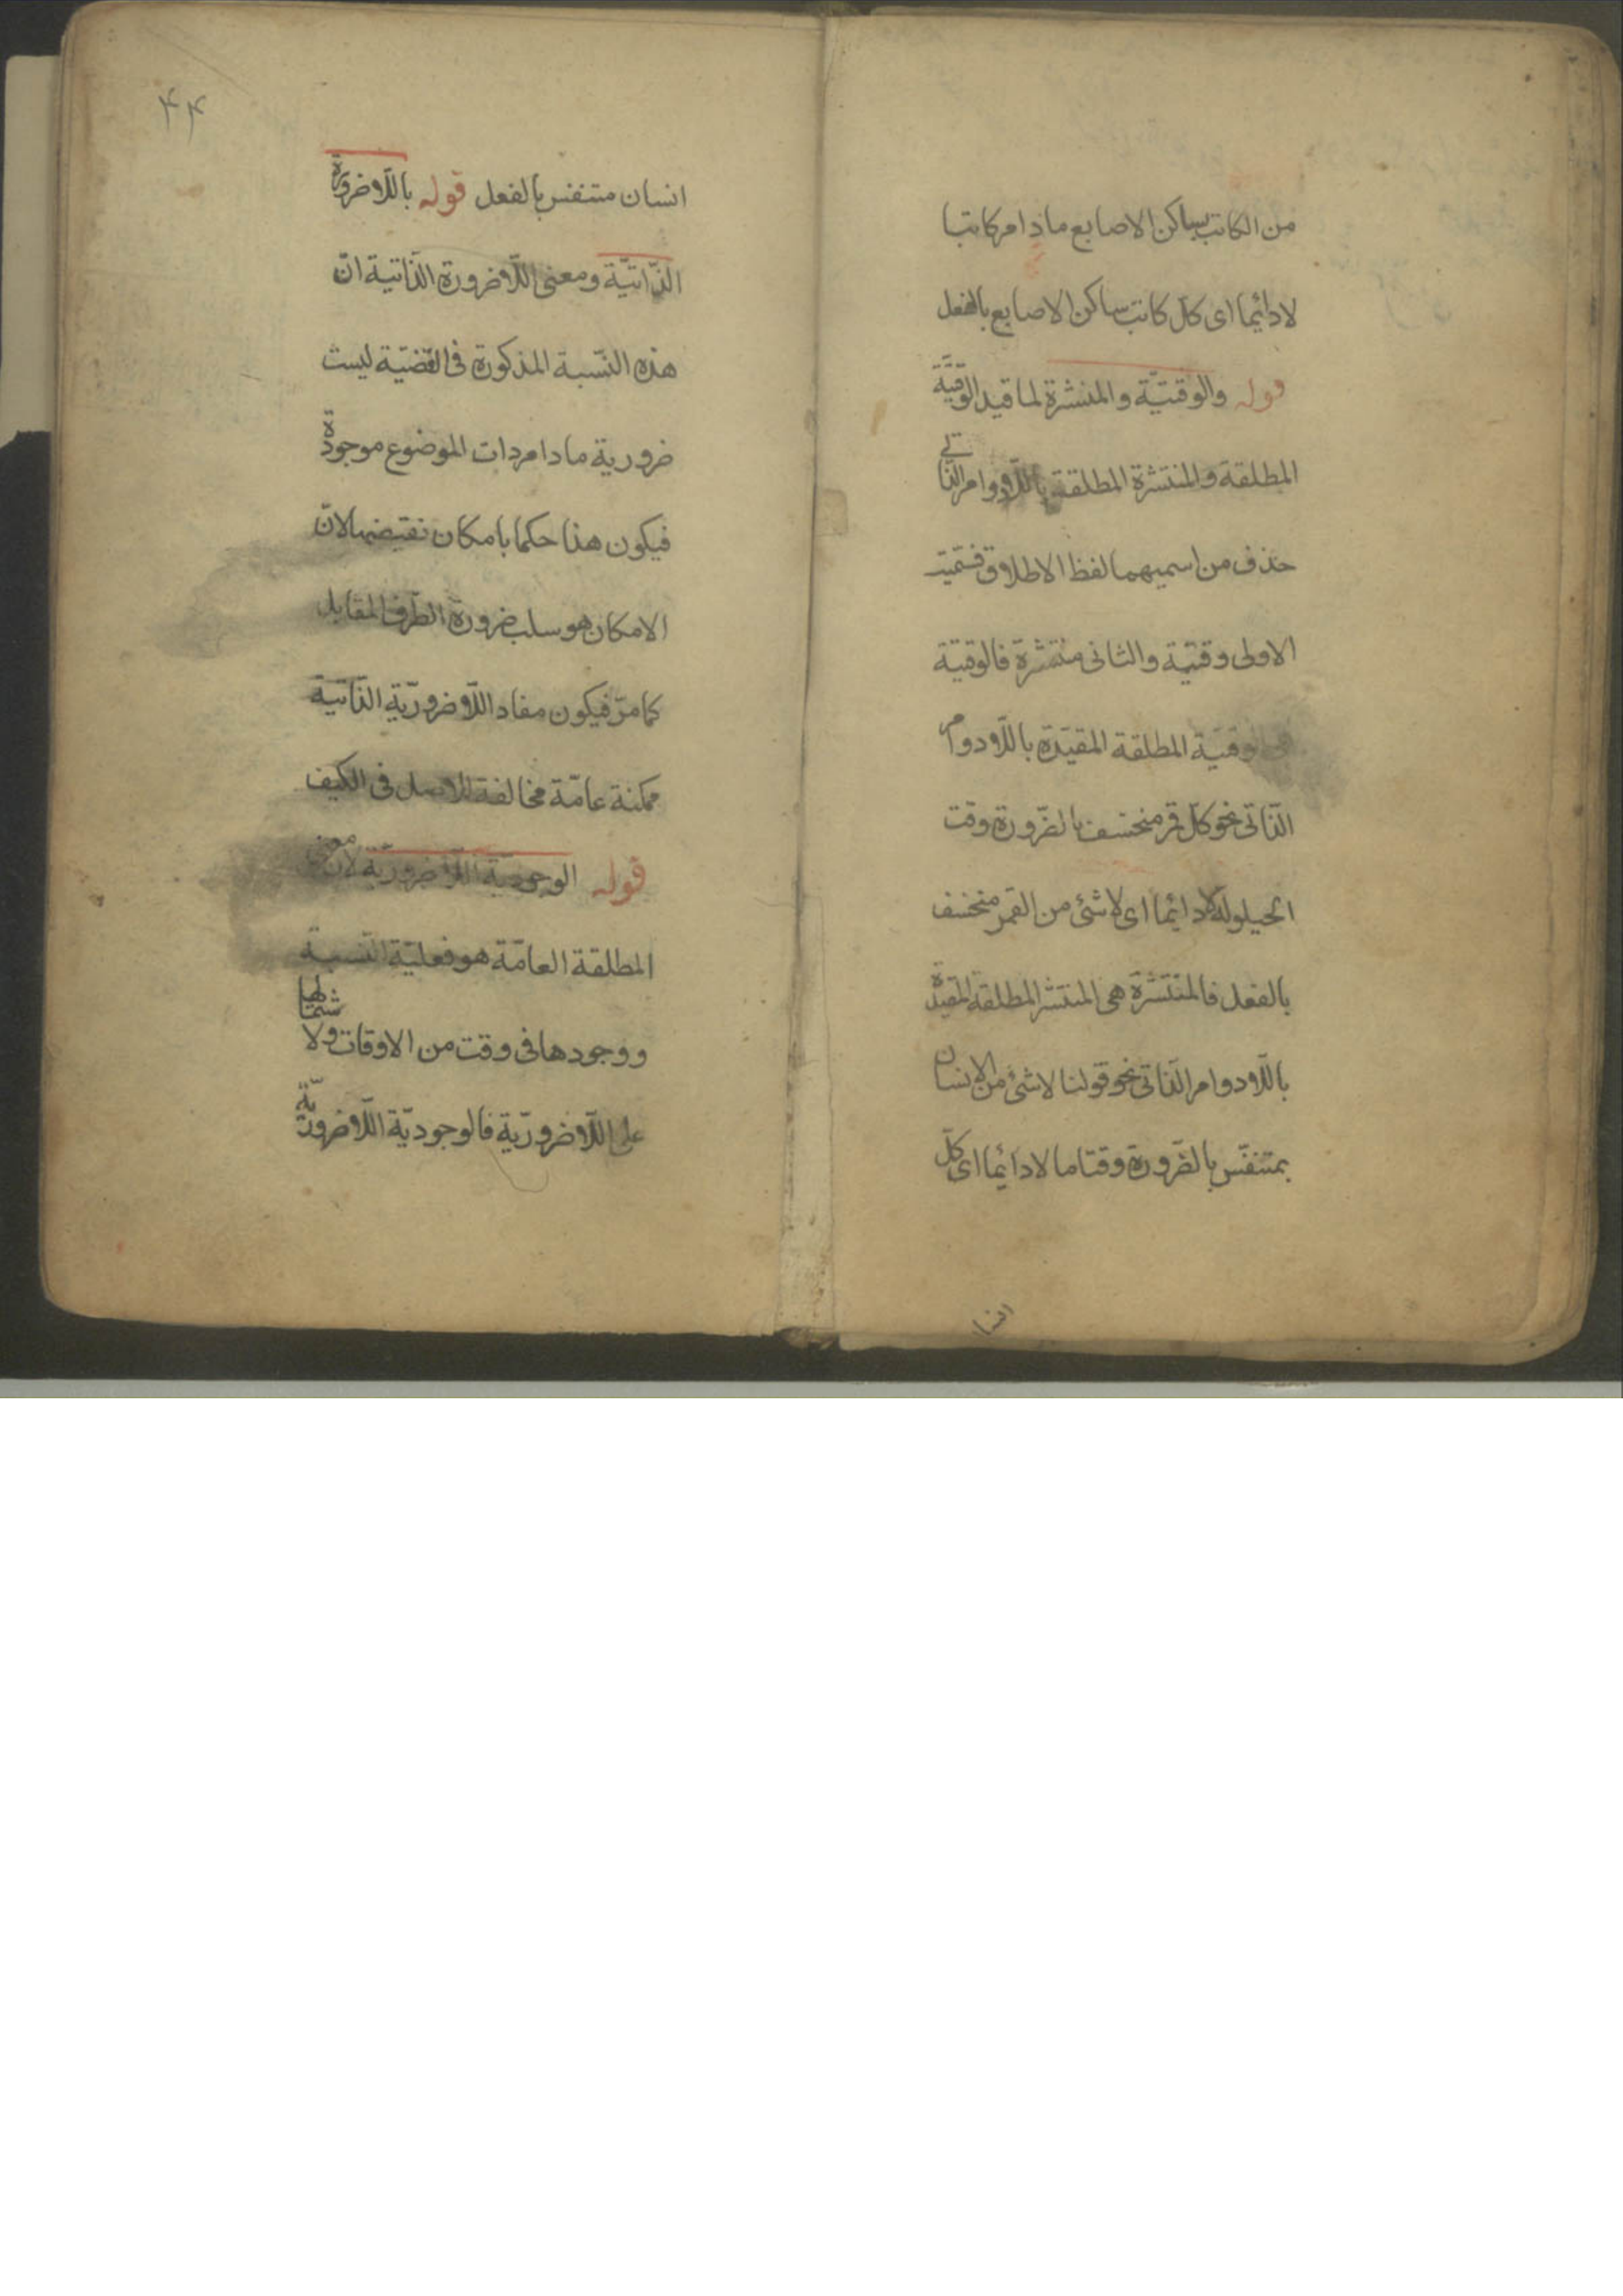 من الكاتب بساكن الاصابع ماذامر كاتبا
لادائما اى كلّ كاتب ساكن الاصابع بالفعل
قوله والوقتيّة والمنتشرة لما قيد الوقتيّة
المطلقة والمنتشرة المطلقة باللّادوام الذّاتى
حذف من اسميهما لفظ الاطلاق فسمّيت
الاولى وقتيّة والثانى منتشرة فالوقتيّة
هى الوقتيّة المطلقة المقيّدة باللّادوام
الذّاتى نحو كلّ قمر منخسف بالضّرورة وقت
الحيلولة لادائما اى لا شئ من القمر بمنخسف
بالفعل فالمنتشرة هى المنتشر المطلقة المقيدة
باللّادوام الذّاتى نحو قولنا لا شئ من الانسان
بمتنفّس بالضّرورة وقتا ما لادائما اى كلّ
انسا
۴۴
انسان متنفس بالفعل قوله باللّاضرورة
الذّاتيّة ومعنى اللّاضرورة الذّاتية انّ
هذه النّسبة المذكورة فى القضيّة ليست
ضرورية مادام ذات الموضوع موجودة
فيكون هذا حكما بامكان نقيضها لانّ
الامكان هو سلب ضرورة الطّرف المقابل
كما مرّ فيكون مفاد اللّاضروريّة الذّاتية
ممكنة عامّة مخالفة للاصل فى الكيف
قوله الوجوديّة اللّاضروريّة لانّ معنى
المطلقة العامّة هو فعليّة النّسبة
ووجودها فى وقت من الاوقات ولا شتمالها
على اللّاضروريّة فالوجوديّة اللّاضروريّة